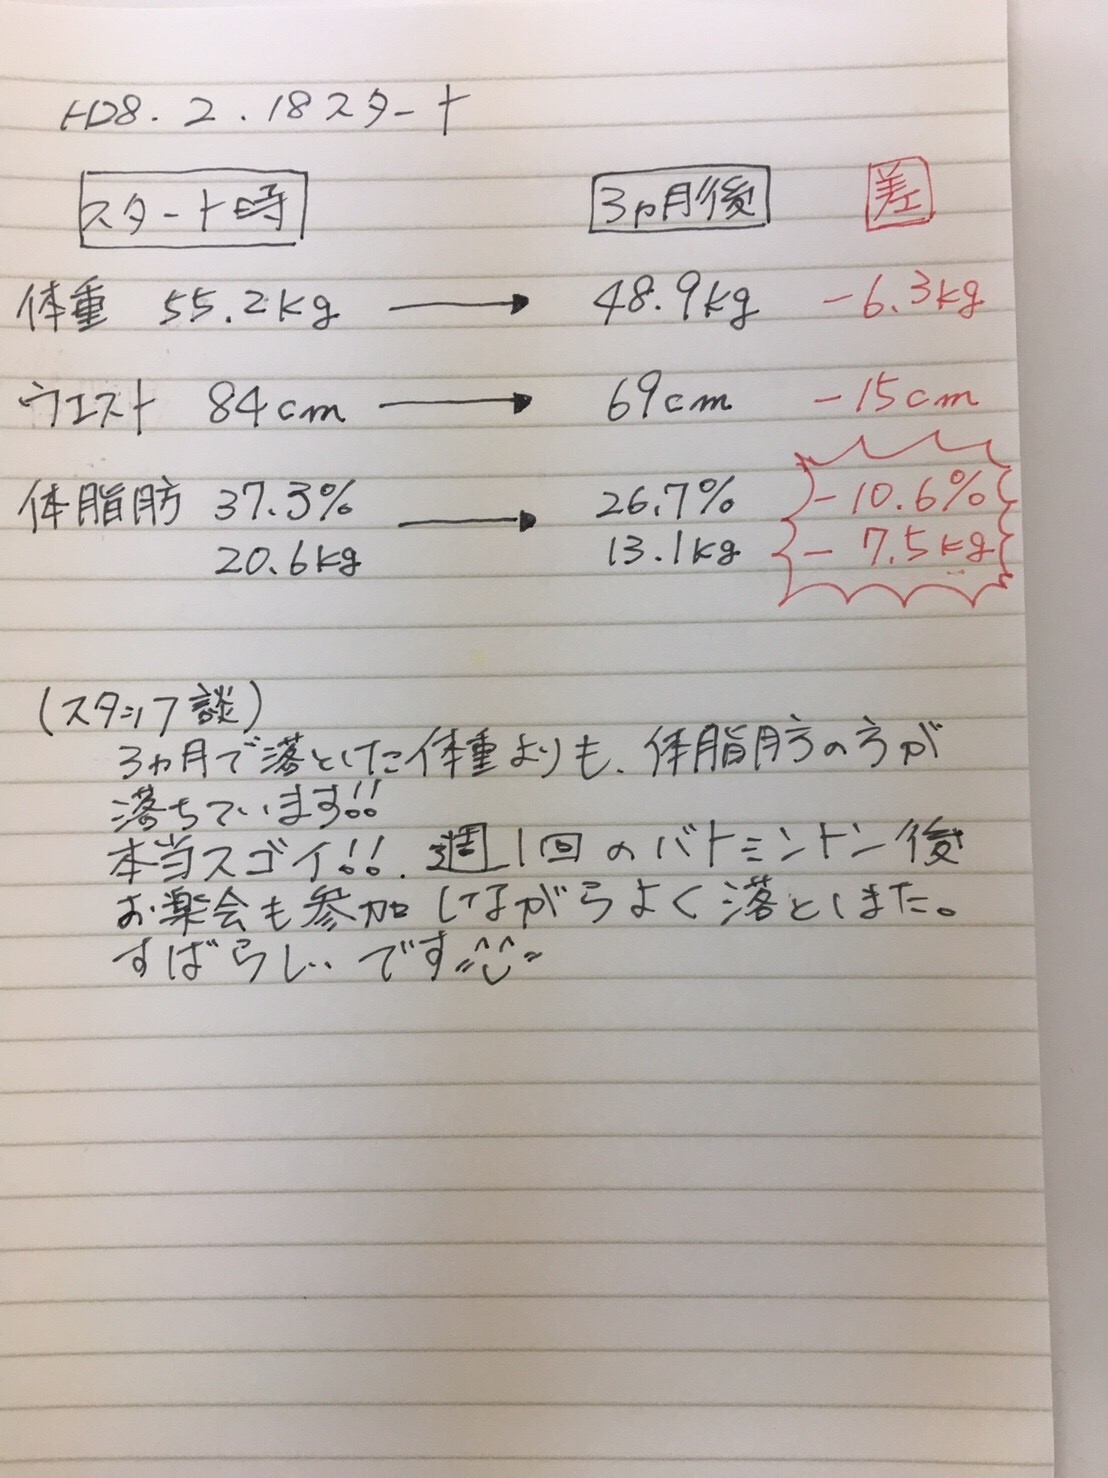 H28.2.18スタート
スタート時 3ヵ月後 差
体重 55.2kg → 48.9kg -6.3kg
ウエスト 84cm → 69cm -15cm
体脂肪 37.3% → 26.7% -10.6%
20.6kg 13.1kg - 7.5kg
(スタッフ談)
3ヵ月で落とした体重よりも、体脂肪の方が
落ちています!!
本当スゴイ!!. 週1回のバトミントン後
お楽会も参加しながらよく落としました。
すばらしいです